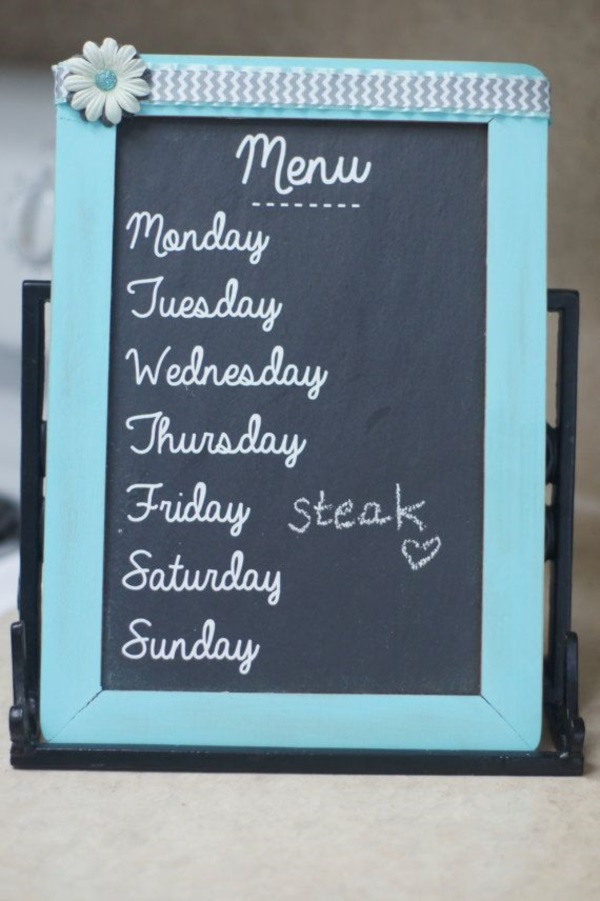 Menu
Monday
Tuesday
Wednesday
Thursday
Friday steak
Saturday
Sunday